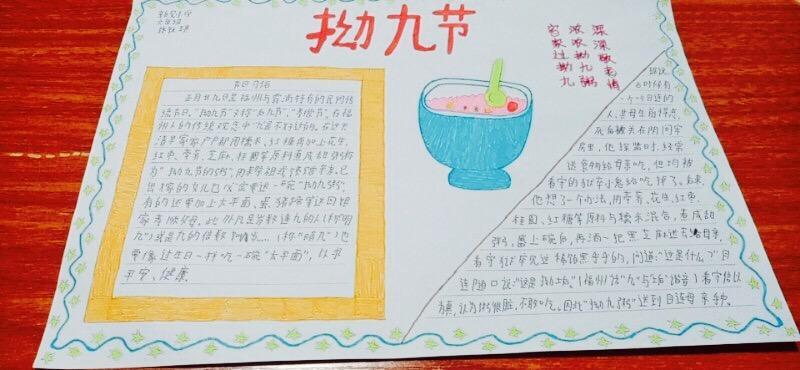 六年级
拗九节
深深敬老情
浓浓拗九粥
家过拗九
节日介绍
正月廿九日是福州与旁沿特有的民间传
统节日,“拗九节”又称“后九节”、“孝顺节”。在福
州人的传统观念中“九”是不好的。在这天
清早家家户户都用糯米、红糖再加上花生、
红枣、荸荠、芝麻、桂圆等原料煮成甜粥称
为“拗九节的粥”,用来祭祖或馈赠亲友。已
出嫁的女儿也必定要送一碗“拗九粥”,
有的还要加上太平面、蛋、猪蹄等送回娘
家孝顺父母。此外凡是岁数逢九的人(称“明
九”)或是九的倍数 ……(称“暗九”)也
要像过生日一样吃一碗“太平面”,以求
平安、健康
据说
古时候有
一个叫目连的
人,其母生前
死后被关在阴间牢
房里,他探监时,经常
送食物给母亲吃,但均被
看守的狱卒小鬼给吃掉了。后来,
他想了一个办法,用荸荠、花生、红枣、
桂圆、红糖等原料与糯米混合,煮成甜
粥,盛上碗后,再洒一把黑芝麻送去给母亲,
看守狱卒见这样黑乎乎的,问道:“这是什么?”目
连随口说:“这是拗垢。”(福州话“九”与“垢”谐音)看守信以
为真,认为粥很脏,不敢吃。因此“拗九粥”送到目连母亲手